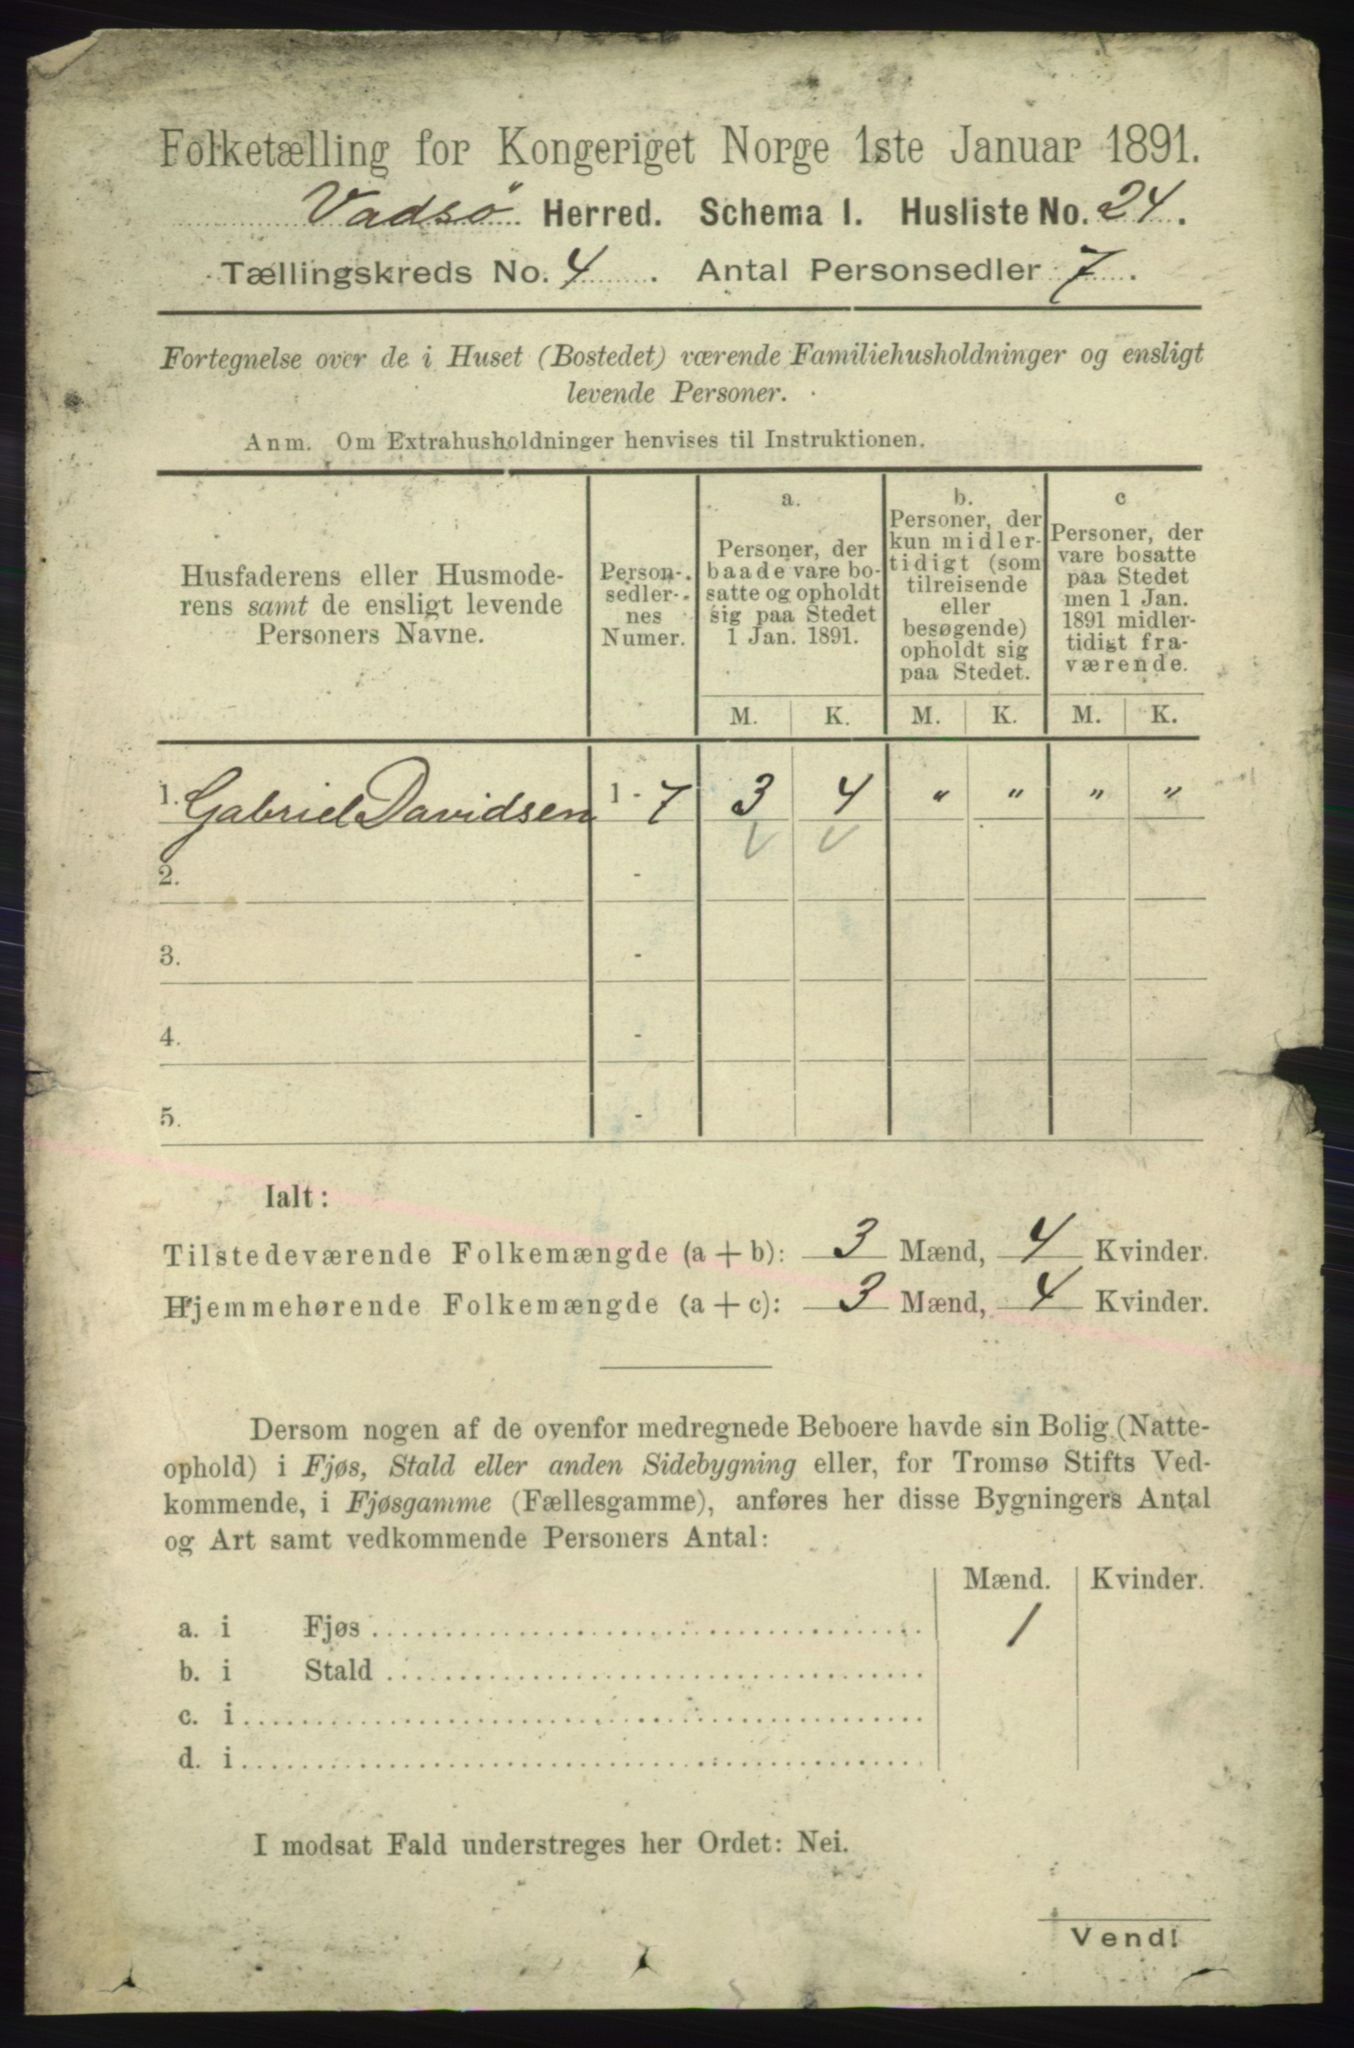 Folketælling for Kongeriget Norge 1ste Januar 1891.
Vadsø Herred. Schema 1. Husliste No. 24.
Tællingskreds No. 4. Antal Personsedler 7.
Fortegnelse over de i Huset (Bostedet) værende Familiehusholdninger og ensligt
levende Personer.
Anm. Om Extrahusholdninger henvises til Instruktionen.
Husfaderens eller Husmode-
rens samt de ensligt levende
Personers Navne.
Person-
sedler-
nes
Numer.
a.
Personer, der
baade vare bo-
satte og opholdt
sig paa Stedet
1 Jan. 1891.
b.
Personer, der
kun midler-
tidigt (som
tilreisende
eller
besøgende)
opholdt sig
paa Stedet.
c
Personer, der
vare bosatte
paa Stedet
men 1 Jan.
1891 midler-
tidigt fra-
værende.
M. K. M. K. M. K.
1. Gabriel Davidsen 1 - 7 3 4 " " " "
2. -
3. -
4. -
5. -
Ialt:
Tilstedeværende Folkemængde (a + b): 3 Mænd, 4 Kvinder.
Hjemmehørende Folkemængde (a + c): 3 Mænd, 4 Kvinder.
Dersom nogen af de ovenfor medregnede Beboere havde sin Bolig (Natte-
ophold) i Fjøs, Stald eller anden Sidebygning eller, for Tromsø Stifts Ved-
kommende, i Fjøsgamme (Fællesgamme), anføres her disse Bygningers Antal
og Art samt vedkommende Personers Antal:
Mænd. Kvinder.
a. i Fjøs 1
b. i Stald
c. i
d. i
I modsat Fald understreges her Ordet: Nei.
Vend!